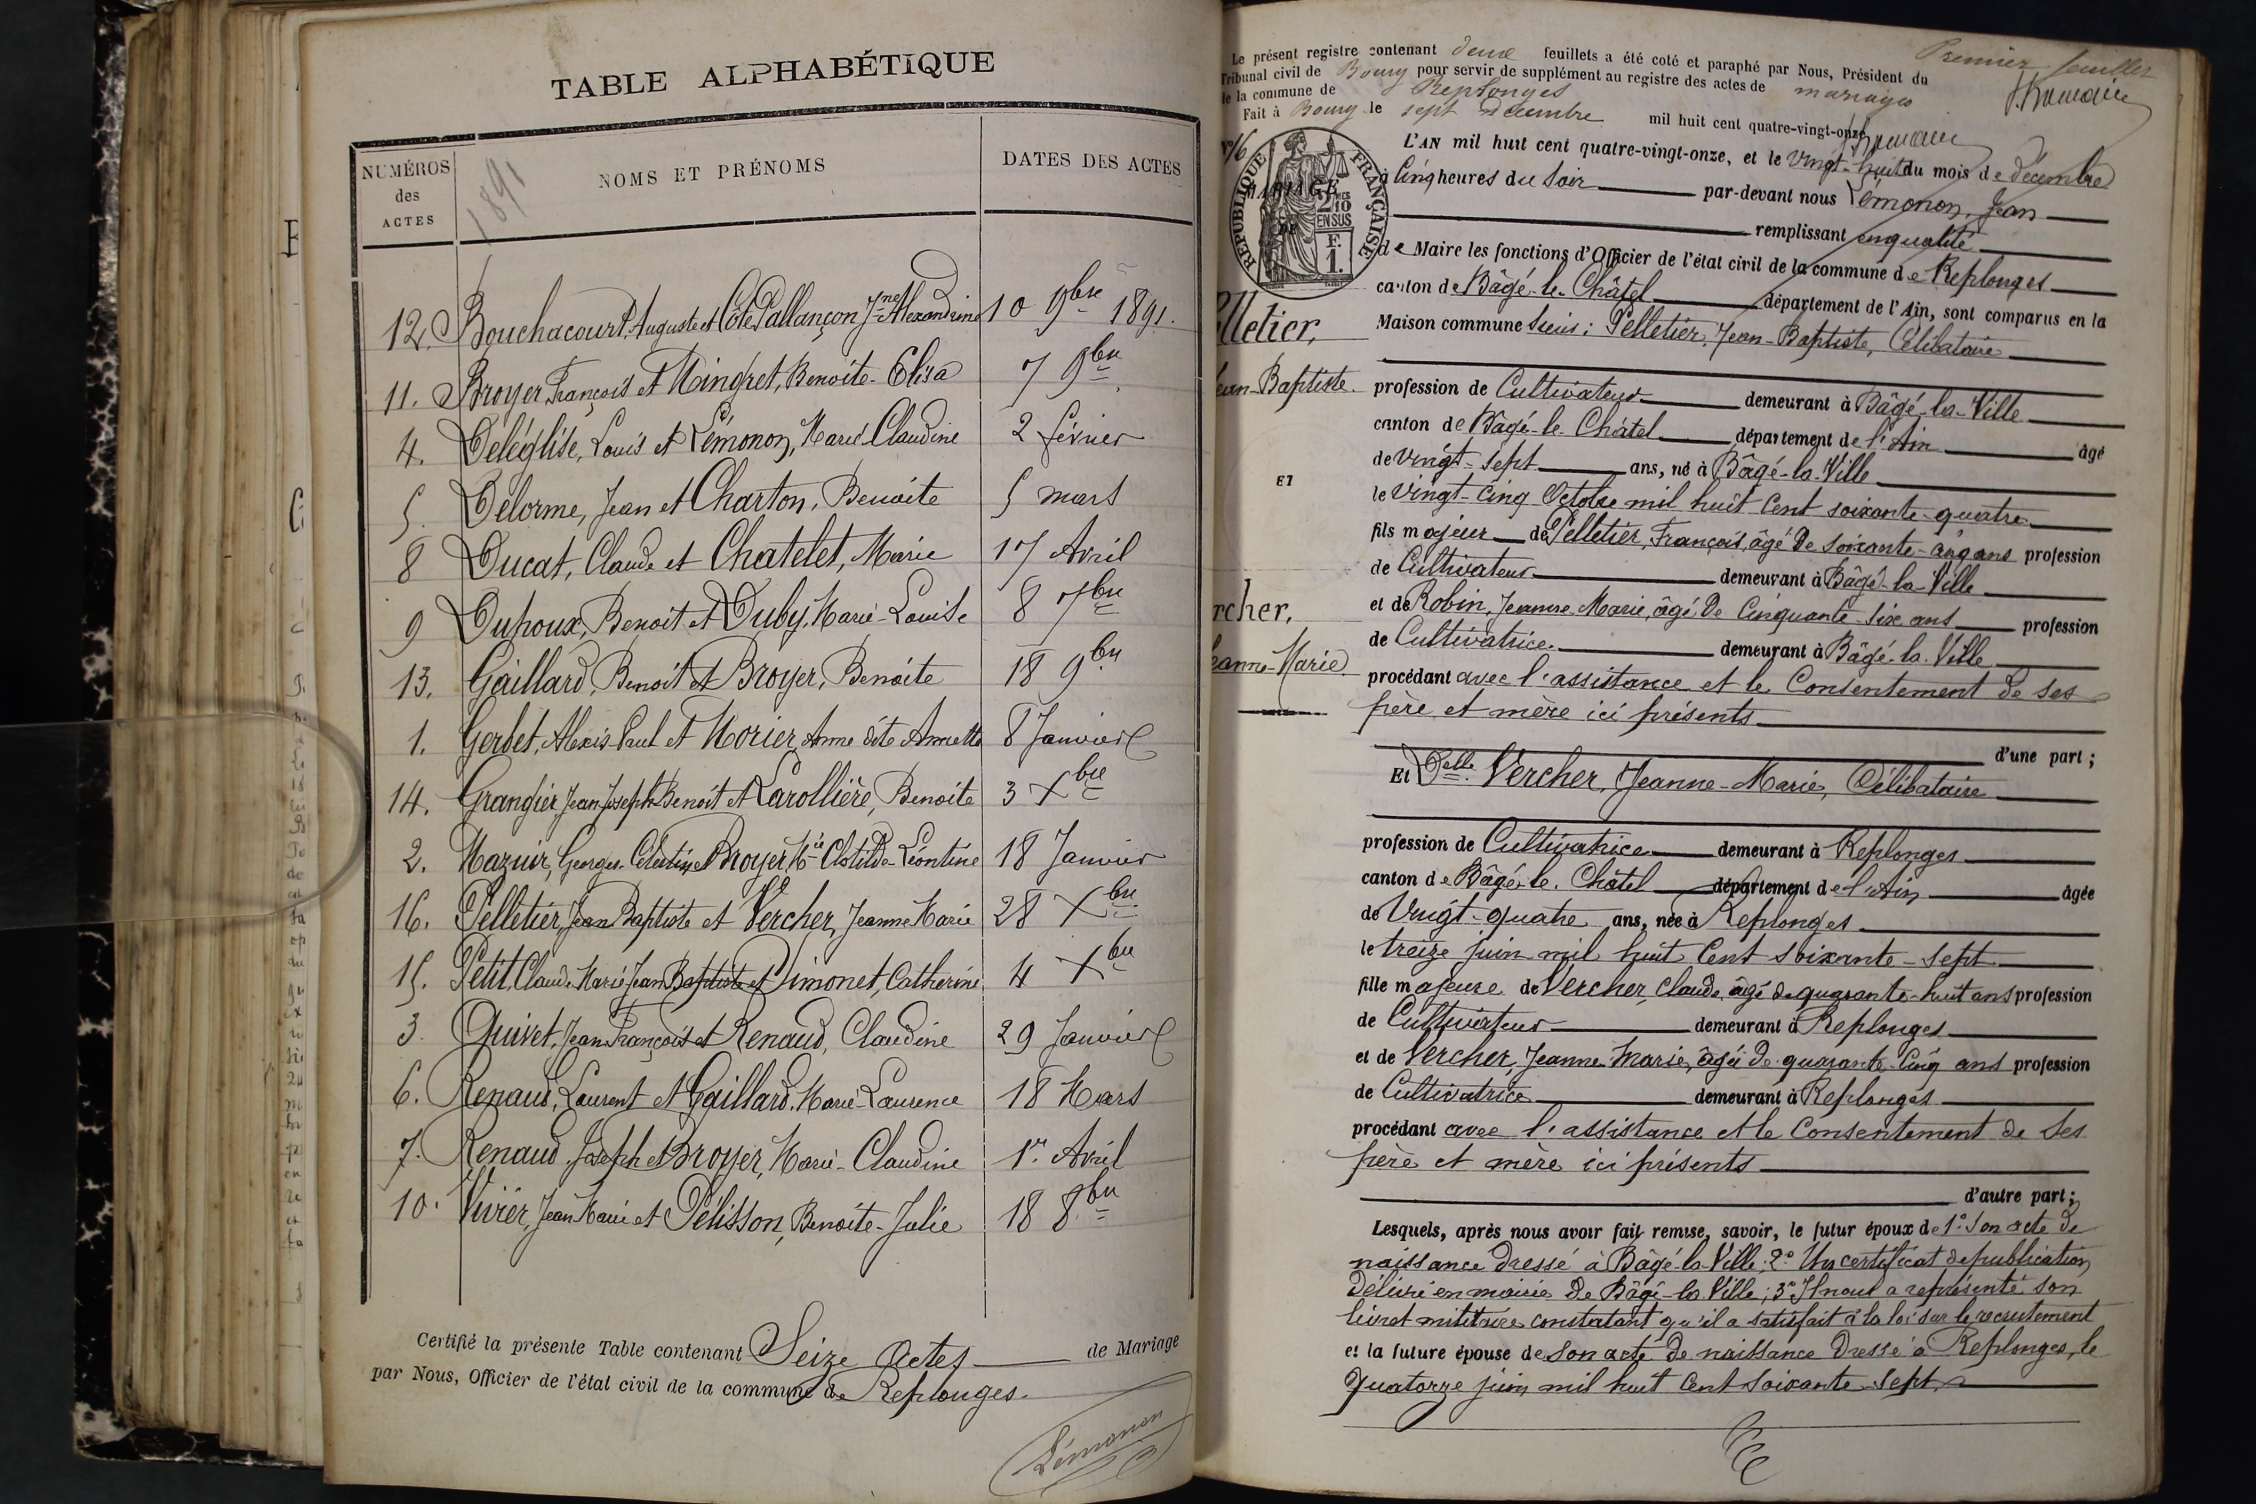 TABLE ALPHABÉTIQUE
NUMÉROS
des
ACTES
1891
NOMS ET PRÉNOMS
DATES DES ACTES
12. Bouchacourt, Auguste et Côte Pallançon Jne Alexandrine 10 9bre 1891.
11. Broyer, François et Mingret, Benoite-Elisa 7 9bre
4. Deléglise, Louis et Lémonon, Marie Claudine 2 février
5. Delorme, Jean et Charton, Benoite 5 mars
8 Ducat, Claude et Chatelet, Marie 17 Avril
9 Duhoux, Benoit et Duby, Marie-Louise 8 7bre
13. Gaillard, Benoit et Broyer, Benoite 18 9bre
1. Gerbet, Alexis Paul et Morier, Anne dite Annette 8 Janvier
14. Grangier, Jean Joseph Benoit et Larollière, Benoite 3 Xbre
2. Mazuir, Georges-Célestin et Broyer Mie Clotilde-Léontine 18 Janvier
16. Pelletier, Jean Baptiste et Vercher, Jeanne Marie 28 Xbre
15. Petit, Claude Marie Jean Baptiste et Dimonet, Catherine 4 Xbre
3. Quivet, Jean François et Renaud, Claudine 29 Janvier
6. Renaud, Laurent et Gaillard, Marie-Laurence 18 Mars
7. Renaud, Joseph et Broyer, Marie-Claudine 1er Avril
10. Vivier, Jean Marie et Pélisson, Benoite-Julie 18 8bre
Certifié la présente Table contenant Seize actes de Mariage
par Nous, Officier de l'état civil de la commune de Replonges.
Lémonon
Premier feuillet
Le présent registre contenant deux feuillets a été coté et paraphé par Nous, Président du
Tribunal civil de Bourg pour servir de supplément au registre des actes de mariages
de la commune de Replonges
Fait à Bourg le sept décembre mil huit cent quatre-vingt-onze
N°16
RÉPUBLIQUE FRANÇAISE
2/10
EN SUS
F.
1.
MARIAGE
DE
L'AN mil huit cent quatre-vingt-onze, et le vingt-huit du mois de décembre
à Cinq heures du Soir par-devant nous Lémonon, Jean
remplissant en qualité
de Maire les fonctions d'Officier de l'état civil de la commune de Replonges
canton de Bâgé-le-Châtel département de l'Ain, sont comparus en la
lletier,
Maison commune Sieur: Pelletier, Jean-Baptiste, Célibataire
ean-Baptiste.
profession de Cultivateur demeurant à Bâgé-la-Ville
canton de Bâgé-le-Châtel département de l'Ain âgé
de vingt-sept ans, né à Bâgé-la-Ville
ET
le vingt-cinq Octobre mil huit cent soixante-quatre
fils majeur de Pelletier, François, âgé de soixante-cinq ans profession
de Cultivateur demeurant à Bâgé-la-Ville
rcher,
et de Robin, Jeanne Marie, âgé de cinquante-six ans profession
de Cultivatrice demeurant à Bâgé-la-Ville
eanne-Marie
procédant avec l'assistance et le Consentement de ses
père et mère ici présents
d'une part;
Et Delle Vercher, Jeanne-Marie, Célibataire
profession de Cultivatrice demeurant à Replonges
canton de Bâgé-le-Châtel département de l'Ain âgée
de Vingt-quatre ans, née à Replonges
le treize juin mil huit cent soixante-sept
fille majeure de Vercher, Claude, âgé de quarante-huit ans profession
de Cultivateur demeurant à Replonges
et de Vercher, Jeanne-Marie, âgée de quarante-cinq ans profession
de Cultivatrice demeurant à Replonges
procédant avec l'assistance et le Consentement de ses
père et mère ici présents
d'autre part;
Lesquels, après nous avoir fait remise, savoir, le futur époux de 1° Son acte de
naissance dressé à Bâgé-la-Ville; 2° Un certificat de publication
délivré en mairie de Bâgé-la-Ville; 3° Il nous a représenté son
livret militaire constatant qu'il a satisfait à la loi sur le recrutement
et la future épouse de son acte de naissance dressé à Replonges, le
quatorze juin mil huit cent soixante-sept.